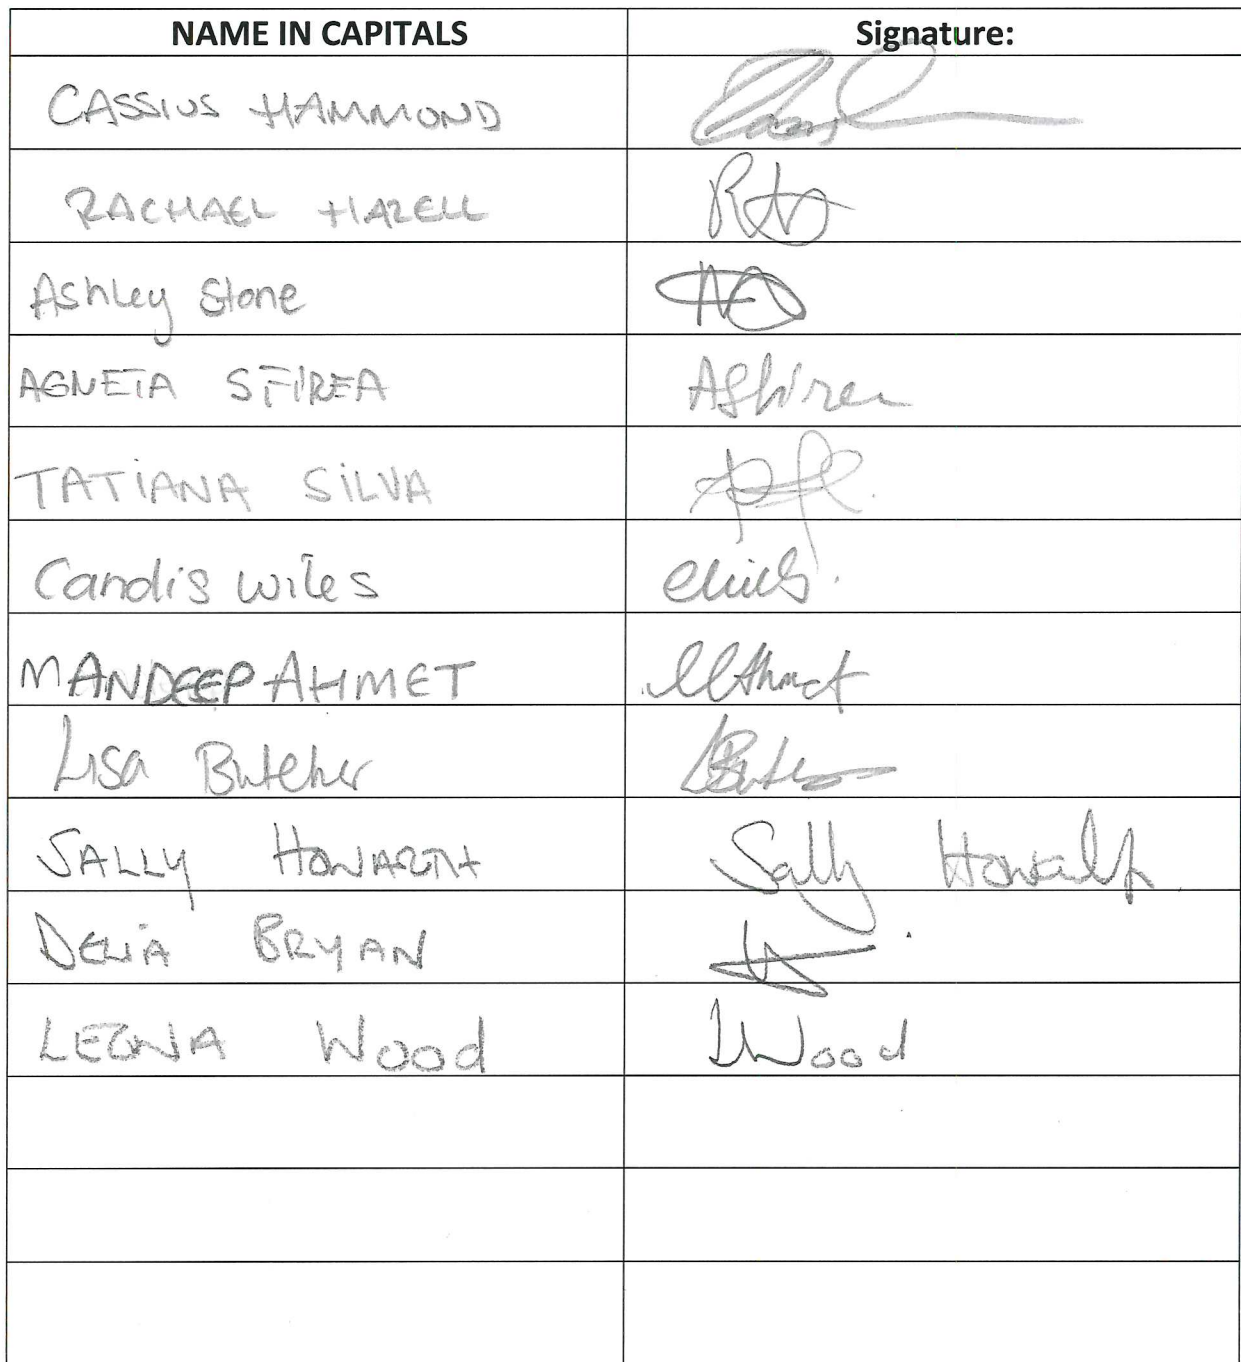 NAME IN CAPITALS Signature:
CASSIUS HAMMOND
RACHAEL HAZELL
Ashley Stone
AGNETA SFIREA ASfirea
TATIANA SILVA
Candis Wiles
MANDEEP AHMET MAhmet
Lisa Butcher
SALLY HOWARTH Sally Howarth
DELIA BRYAN
LEONA Wood LWood